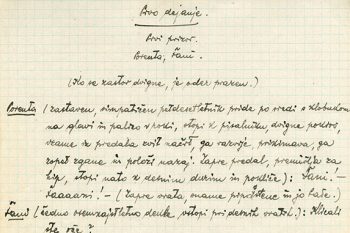 Prvo dejanje.
Prvi prizor.
Porenta, Fani.
(Ko se zastor dvigne, je oder prazen.)
Porenta (zastaven, simpatičen petdesetletnik pride po sredi s klobukom
na glavi in palico v roki, stopi k pisalniku, dvigne pokrov,
vzame iz predala zvit načrt, ga razvije, prikimava, ga
zopet zgane in položi nazaj. Zapre predal, premišlja za
hip, stopi nato k desnim durim in pokliče): Fani! –
Faaaani! – (Zapre vrata, sname in jo
Fani (čedno osemnajstletno dekle, vstopi pri desnih vratih.): Klicali
ste me?